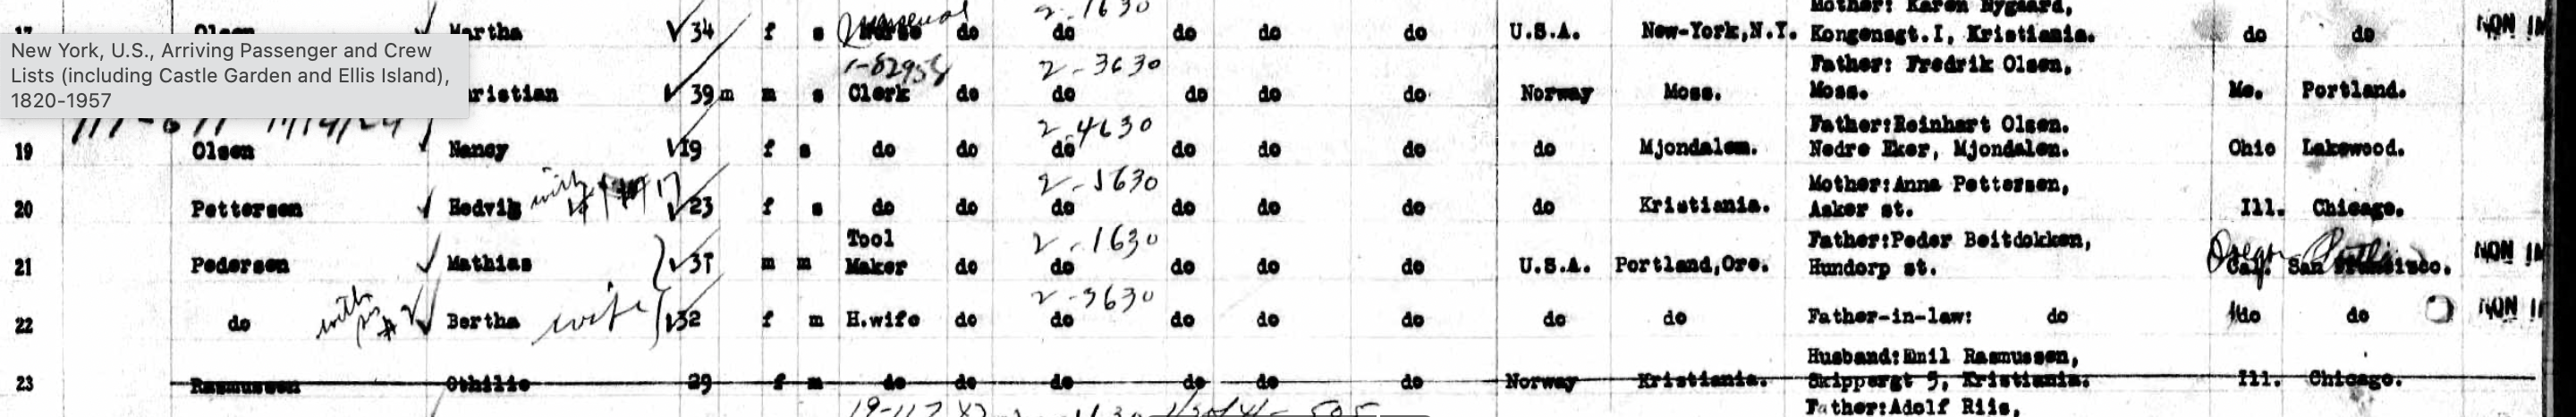 Mother: Karen Nygaard,
17 Olsen Martha 34 f s Nurse do do do do do U.S.A. New-York,N.Y. Kongensgt.I, Kristiania. do do NON IM
2-1630
New York, U.S., Arriving Passenger and Crew
Lists (including Castle Garden and Ellis Island),
1820-1957
1-82954 2-3630 Father: Fredrik Olsen,
ristian 39 m m s Clerk do do do do do Norway Moss. Moss. Me. Portland.
2-4630 Father:Reinhart Olsen.
19 Olsen Nancy 19 f s do do do do do do do Mjondalen. Nedre Eker, Mjondalen. Ohio Lakewood.
with 2-1630 Mother:Anna Pettersen,
20 Pettersen Hedvig 23 f s do do do do do do do Kristiania. Asker st. Ill. Chicago.
Tool 2-1630 Father:Peder Beitdokken, Oregon
21 Pedersen Mathias 37 m m Maker do do do do do U.S.A. Portland,Ore. Hundorp st. Calf. San Francisco. NON IM
with 2-3630
22 do Bertha wife 32 f m H.wife do do do do do do do Father-in-law: do do do NON IM
Husband:Emil Rasmussen,
23 Rasmussen Othilie 29 f m do do do do do do Norway Kristiania. Skippergt 5, Kristiania. Ill. Chicago.
Father:Adolf Riis,